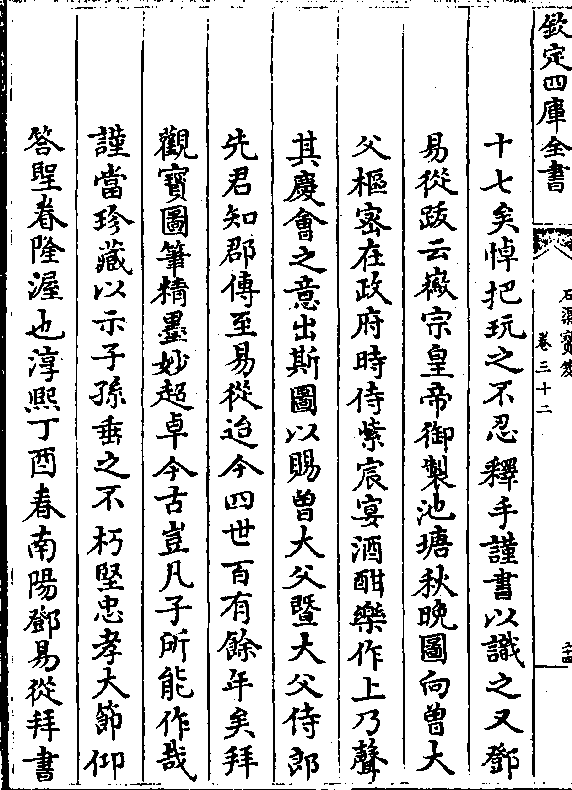 欽定四庫全書
石渠寶笈
卷三十二
十七矣悼把玩之不忍釋手謹書以識之又鄧
易從跋云徽宗皇帝御製池塘秋晚圖向曾大
父樞密在政府時侍紫宸宴酒酣樂作上乃聲
其慶會之意出斯圖以賜曾大父暨大父侍郎
先君知郡傳至易從迨今四世百有餘年矣拜
觀寶圖筆精墨妙超卓今古豈凡子所能作哉
謹當珍藏以示子孫垂之不朽堅忠孝大節仰
答聖眷隆渥也淳熙丁酉春南陽鄧易從拜書